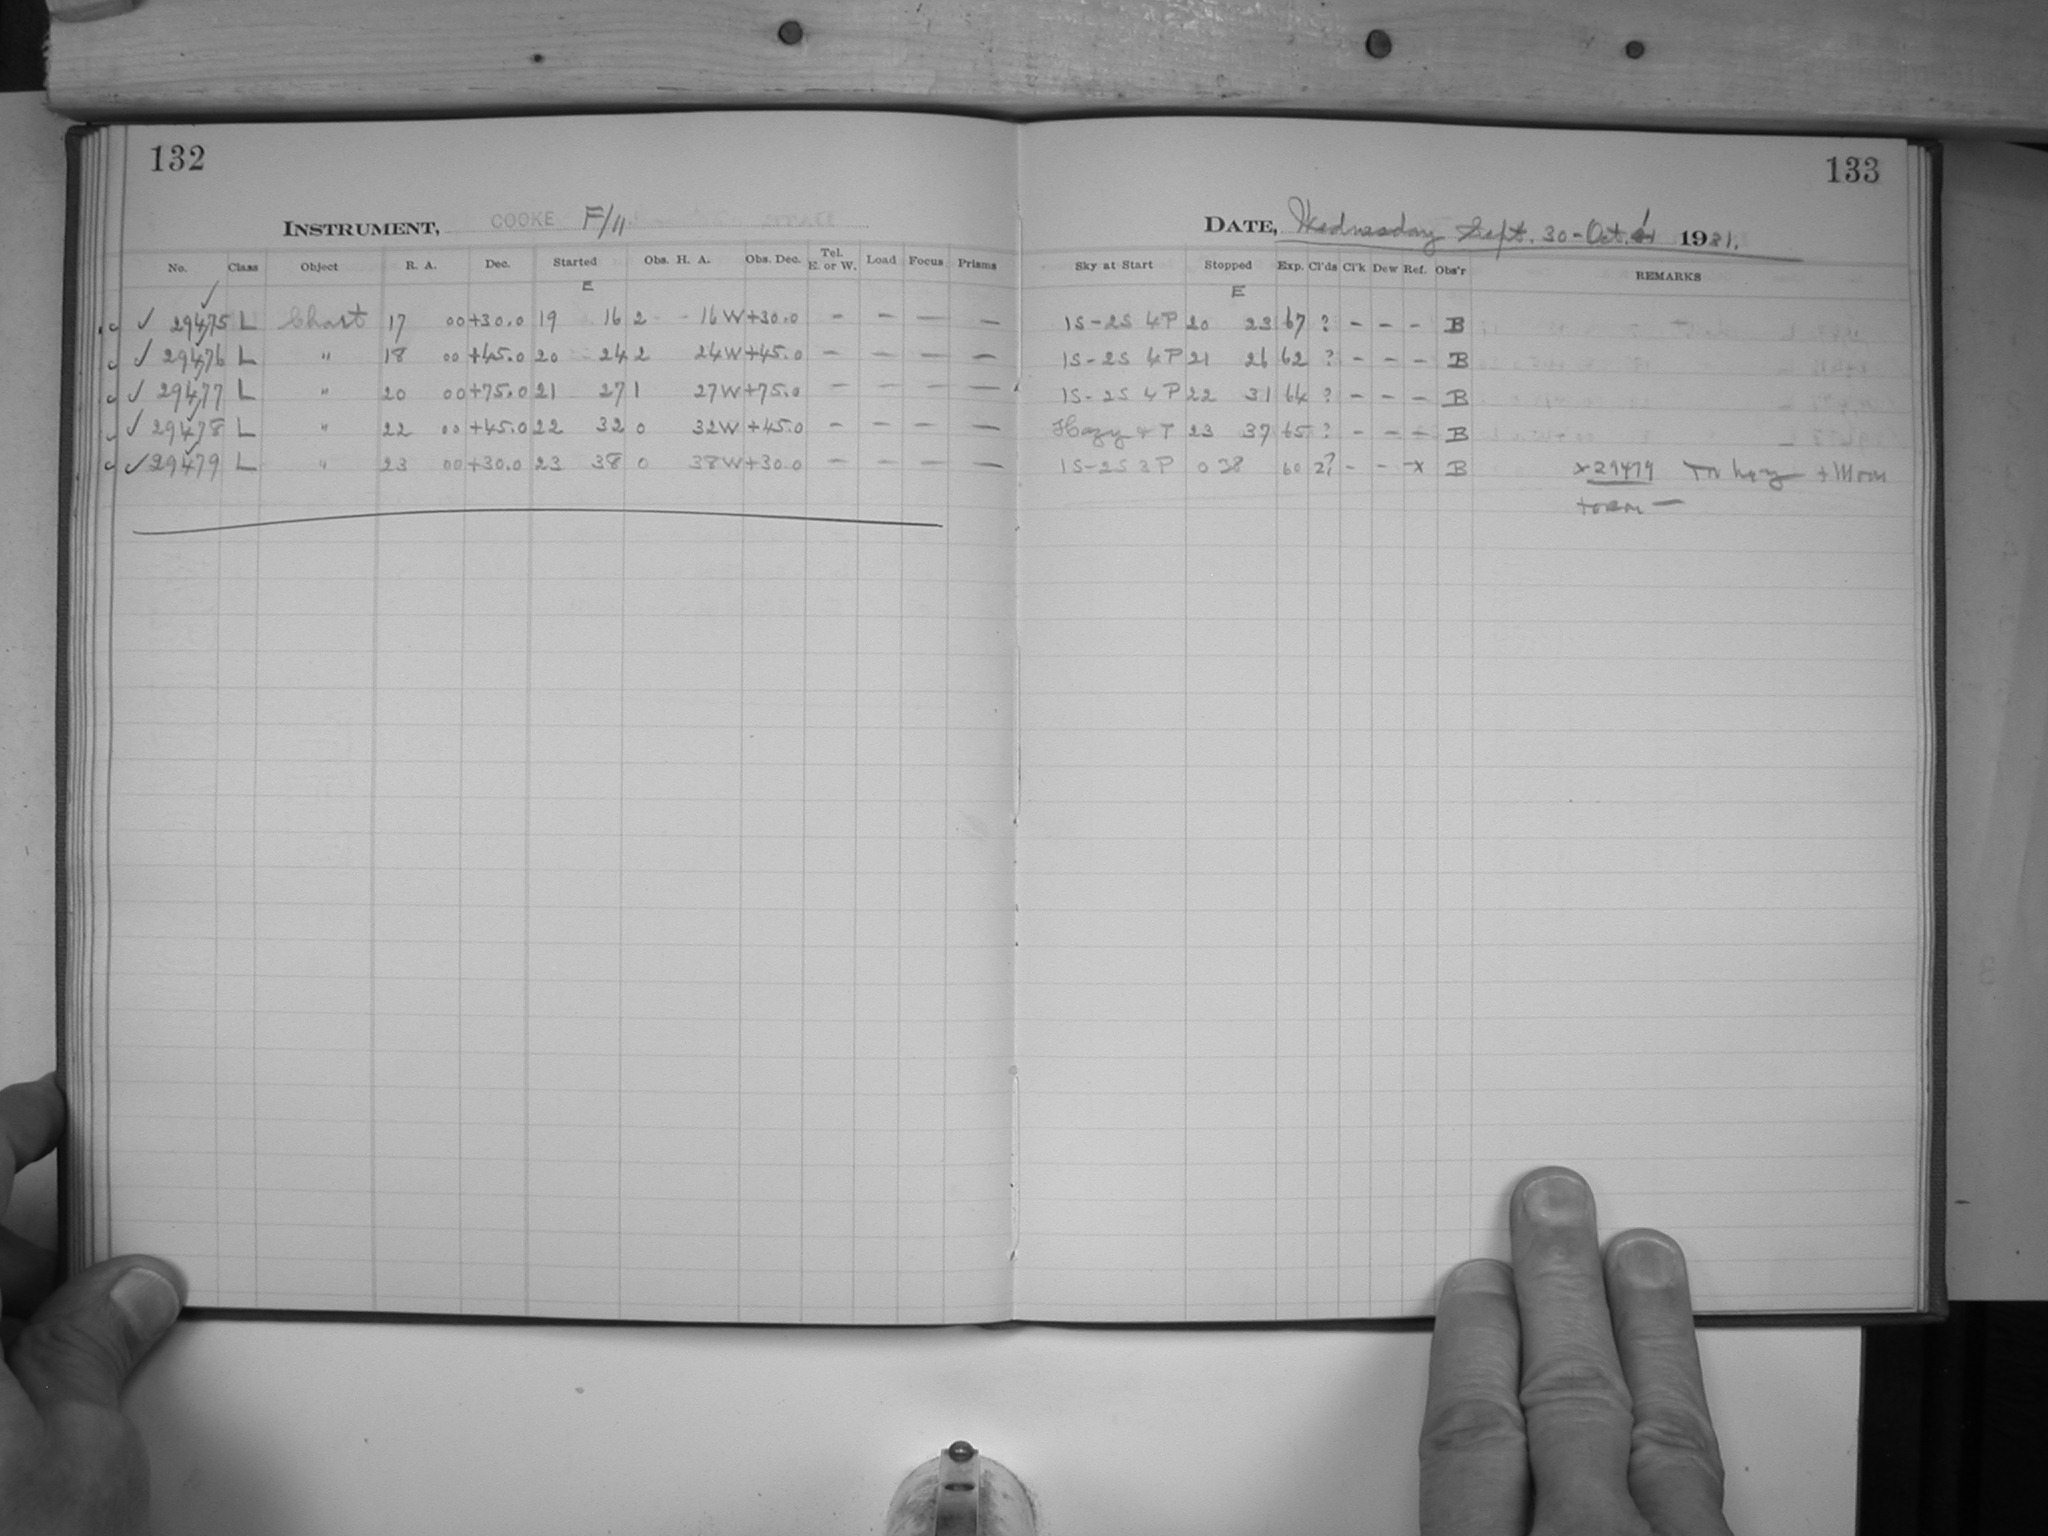 132
INSTRUMENT, COOKE F/11
No. Class Object R. A. Dec. Started Obs. H. A. Obs. Dec. Tel. E. or W. Load Focus Prisms
E
✓ 29475 L Chart 17 00 +30.0 19 16 2 16 W +30.0 - - - -
✓ 29476 L " 18 00 +45.0 20 24 2 24 W +45.0 - - - -
✓ 29477 L " 20 00 +75.0 21 27 1 27 W +75.0 - - - -
✓ 29478 L " 22 00 +45.0 22 32 0 32 W +45.0 - - - -
✓ 29479 L " 23 00 +30.0 23 38 0 38 W +30.0 - - - -
133
DATE, Wednesday Sept. 30 - Oct. 1 1931.
Sky at Start Stopped Exp. Cl'ds Cl'k Dew Ref. Obs'r REMARKS
E
1S-2S 4P 20 23 67 ? - - - B
1S-2S 4P 21 26 62 ? - - - B
1S-2S 4P 22 31 64 ? - - - B
Hazy + T 23 37 65 ? - - - B
1S-2S 3P 0 38 60 2? - - -x B x 29479 hazy + Moon